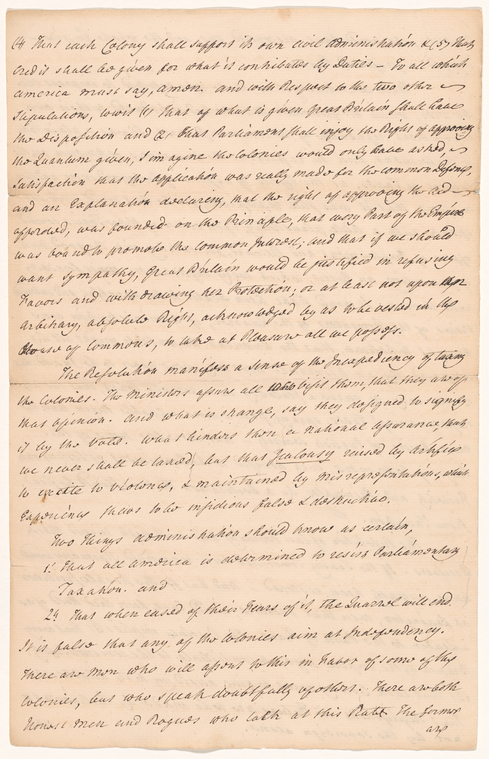 (4) That each Colony shall support its own civil administration & (5) That
Credit shall be given for what is contributed by Duties – To all which
America must say, amen. and with Respect to the two other
Stipulations, to wit (1) That of what is given Great Britain shall have
the Disposition and (2) That Parliament shall enjoy the Right of approving
the Quantum given, I imagine the Colonies would only have asked,
Satisfaction that the application was really made for the common Defence,
and an Explanation declaring, that the right of approving the Aid
offered, was founded on the Principle, that every Part of the Empire
was bound to promote the common Interest; and that if we should
want Sympathy, Great Britain would be justified in refusing
Favors and withdrawing her Protection, or at least not upon
arbitrary, absolute Right, acknowledged by us to be vested in the
House of Commons, to take at Pleasure all we possess.
The Resolution manifests a Sense of the Inexpediency of taxing
the Colonies. The Ministers assure all who visit them, that they are of
that opinion. and what is strange, say they designed to signify
it by the Vote. What hinders then a national assurance that
we never shall be taxed, but that Jealousy raised by Artifice
to excite to Violence, & maintained by misrepresentations, which
Experience shews to be insidious false & destructive.
Two Things administration should know as certain,
1. That all America is determined to resist Parliamentary
Taxation. and
2d That when eased of their Fears of it, the Quarrel will end.
It is false that any of the Colonies aim at Independency.
There are Men who will assert to this in Favor of some of the
Colonies, but who speak doubtfully of others. There are both
Honest Men and Rogues who talk at this Rate. The former
are